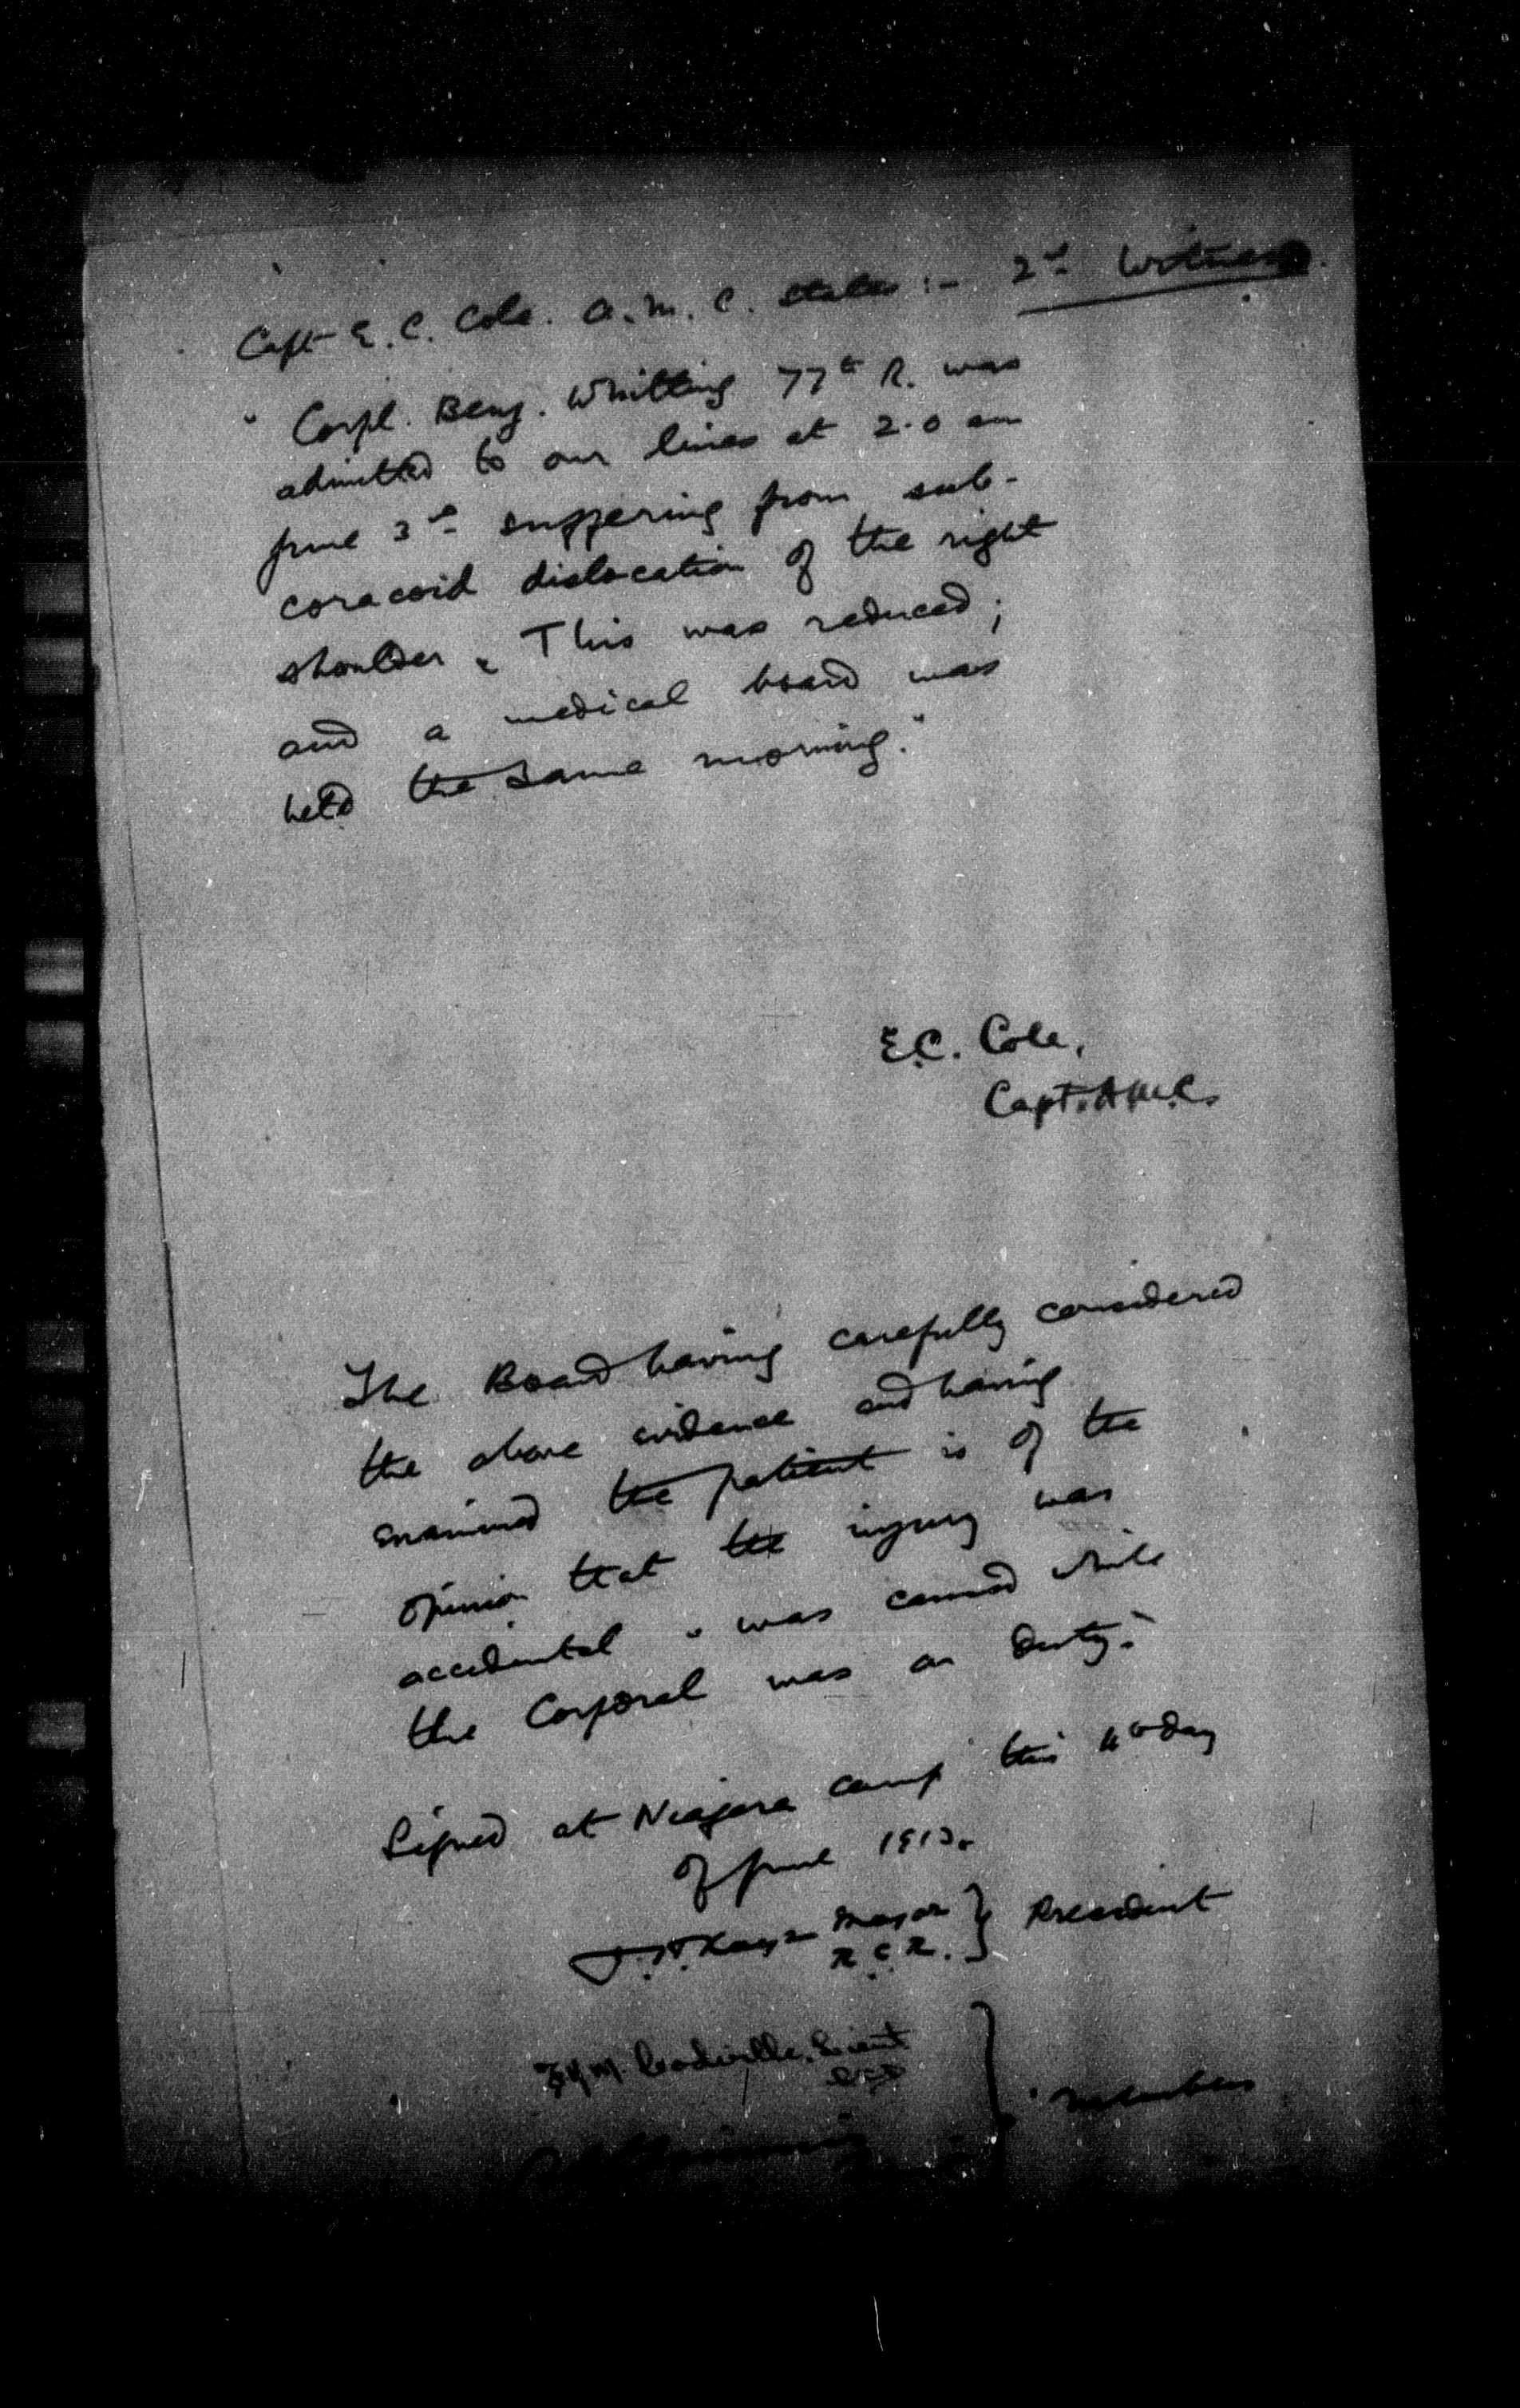 Capt E. C. Cole. A. M. C. states :- 2nd Witness.
" Corpl. Benj. Whitting 77th R. was
admitted to our lines at 2.0 am
June 3rd suffering from sub-
coracoid dislocation of the right
shoulder. This was reduced;
and a medical board was
held the same morning."
E.C. Cole,
Capt. A.M.C.
The Board having carefully considered
the above evidence and having
examined the patient is of the
opinion that the injury was
accidental & was caused while
the Corporal was on duty.
Signed at Niagara Camp this day
of June 1913.
Major } President
R.C.R.
Lieut
Members